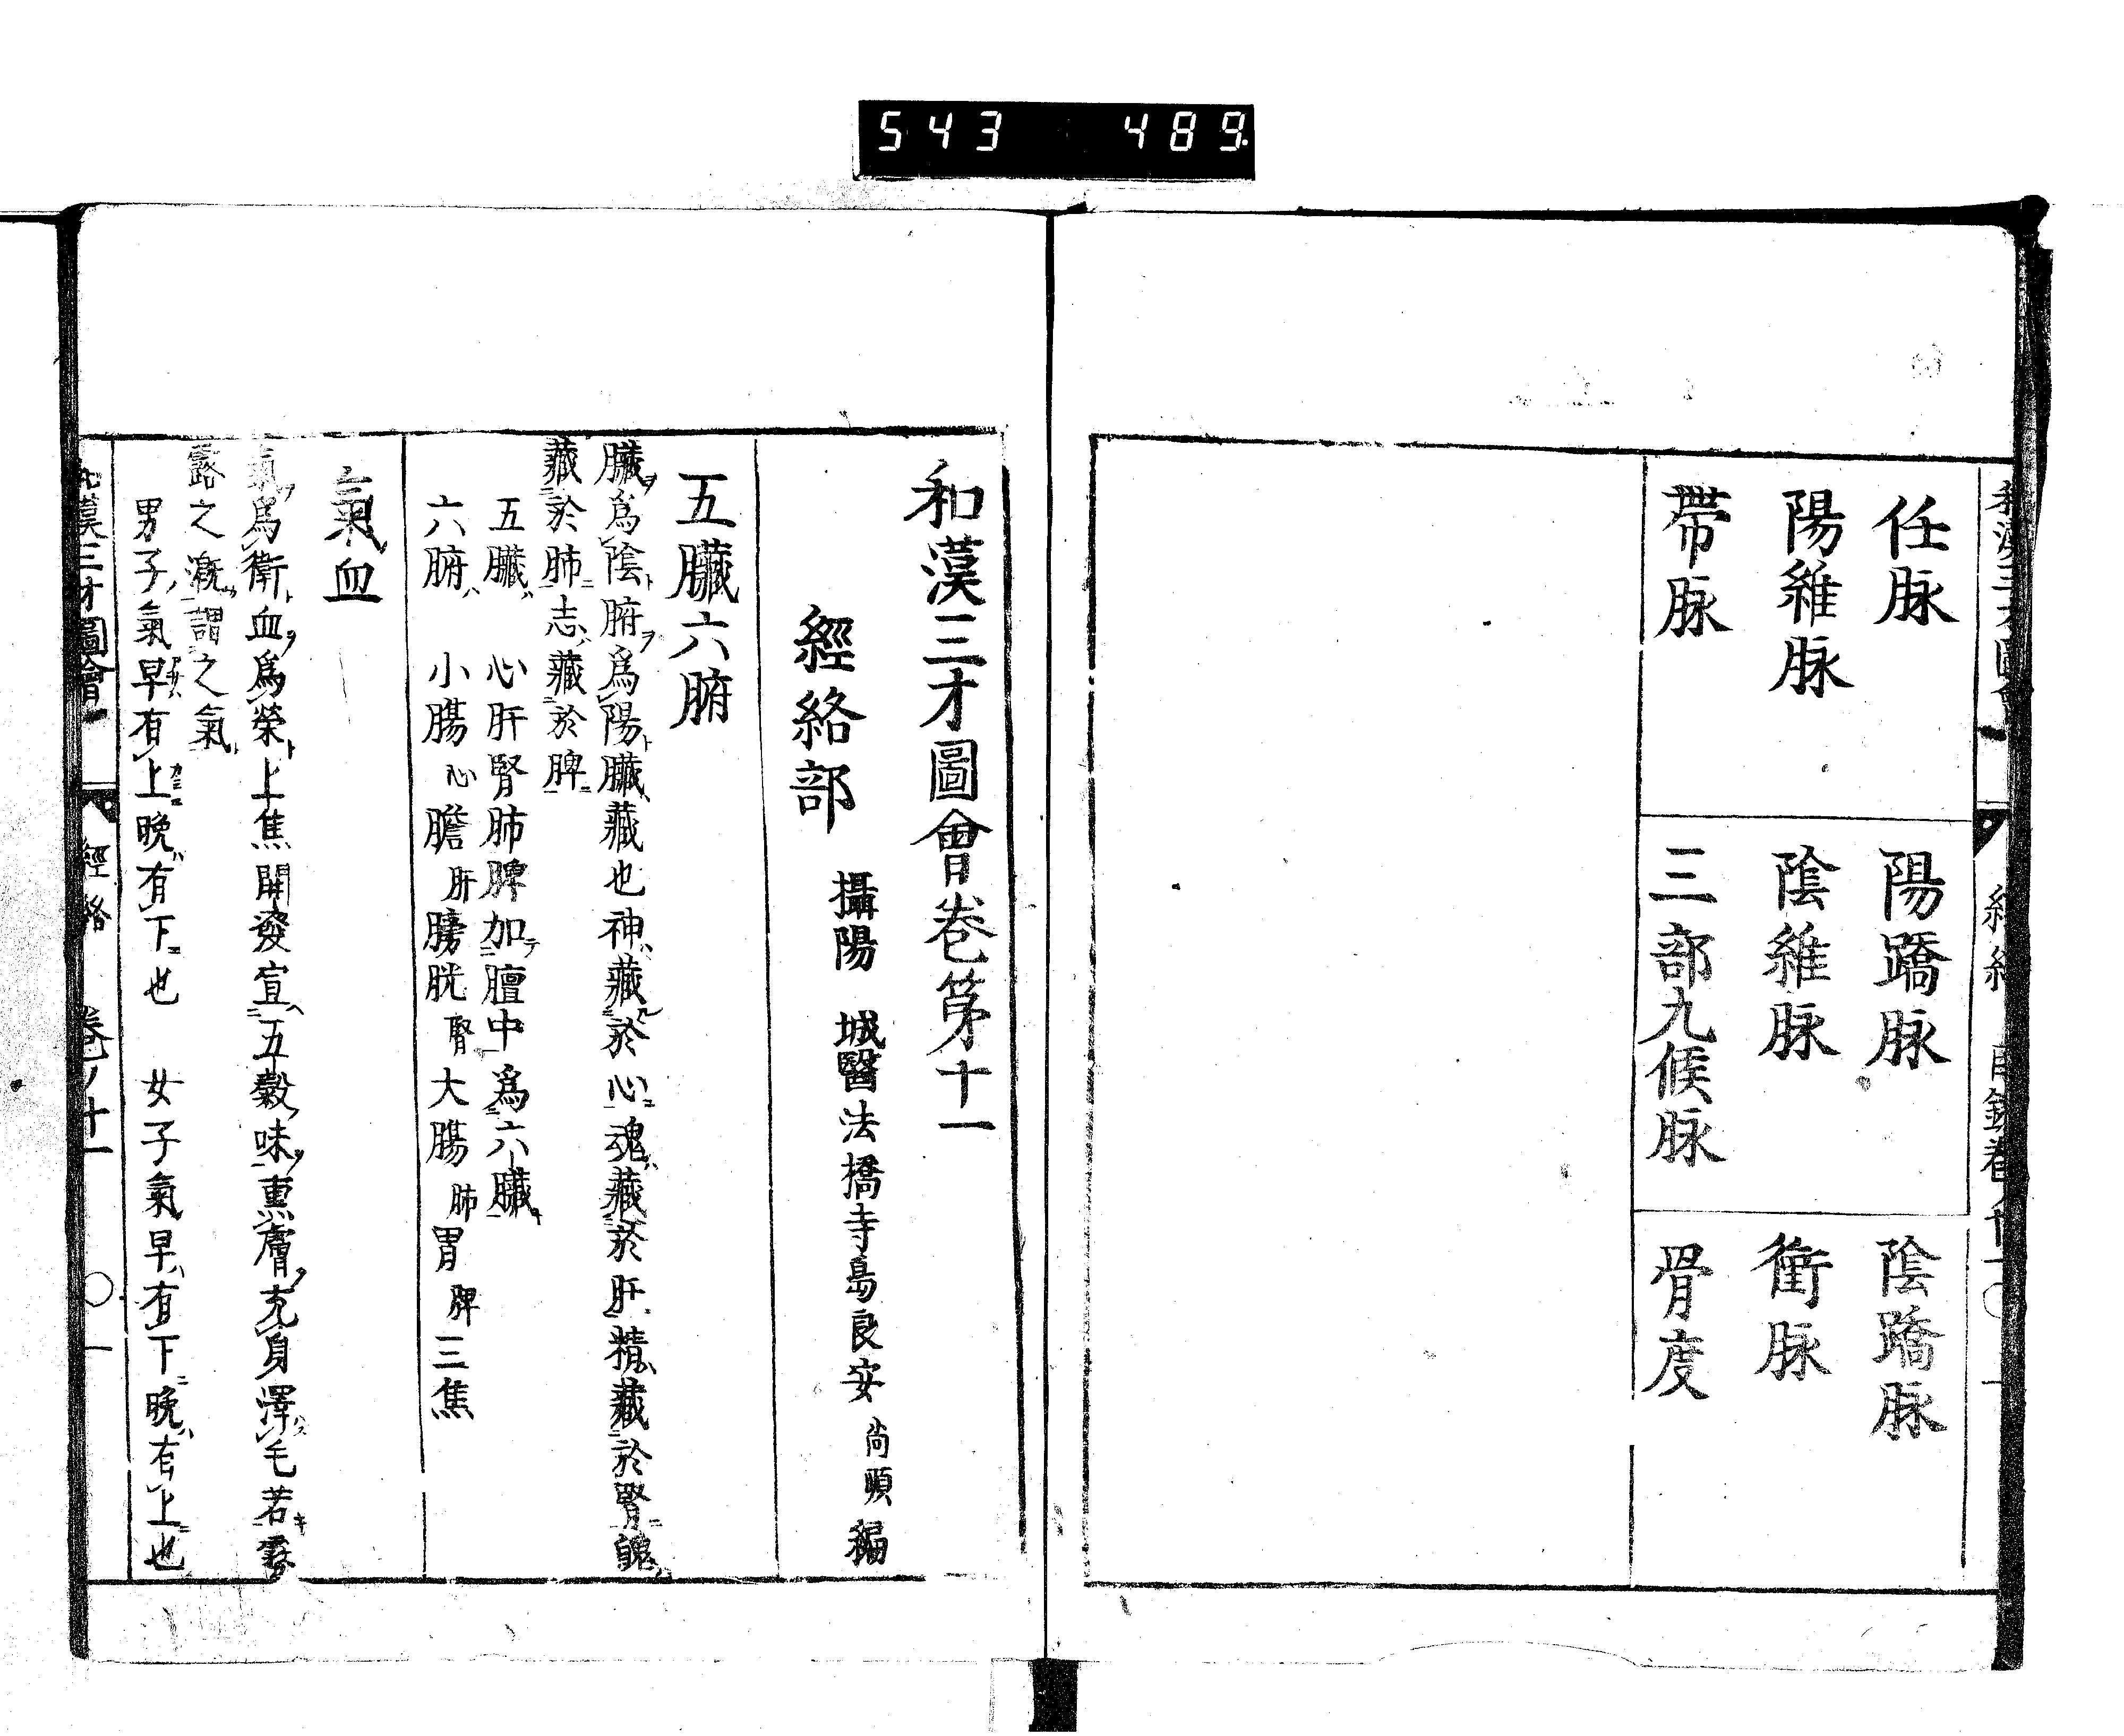 543 489
任脉 陽蹻脉 陰蹻脉
陽維脉 陰維脉 衝脉
帶脉 三部九候脉 骨度
和漢三才圖會卷第十一
經絡部 攝陽 城醫法橋寺島良安 尚順 編
五臟六腑
臟ヲ爲陰ト腑ヲ爲陽ト臟ハ藏也神ハ藏ル於心ニ魂ハ藏於肝ニ精ハ藏於腎ニ魄ハ
藏於肺ニ志ハ藏於脾ニ
五臟ハ 心肝腎肺脾加テ膻中爲六臟
六腑ハ 小腸心膽肝膀胱腎大腸肺胃脾三焦
氣血
氣ヲ爲衛ト血ヲ爲榮ト上焦開發宣五穀味ヲ熏膚ヲ充身澤毛若霧
露之漑謂之氣ト
男子ノ氣早ハ有上ニ晚ハ有下ニ也 女子氣早ハ有下ニ晚ハ有上ニ也
和漢三才圖會 經絡 卷ノ十一 〇一